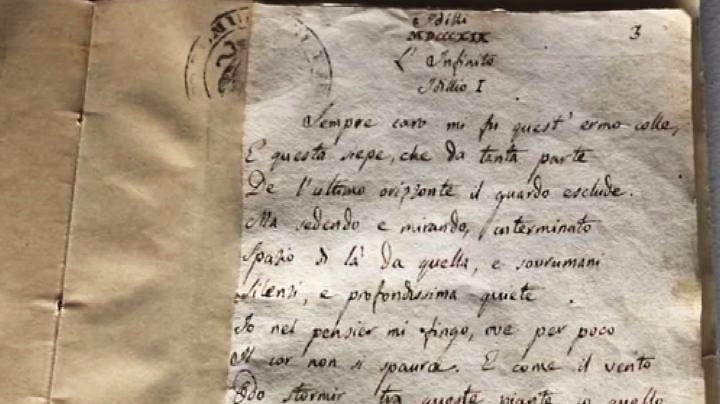 Idilli
MDCCCXIX
3
L' Infinito
Idillio I
Sempre caro mi fu quest' ermo colle,
E questa siepe, che da tanta parte
De l'ultimo orizzonte il guardo esclude.
Ma sedendo e mirando, interminato
Spazio di là da quella, e sovrumani
Silenzi, e profondissima quiete
Io nel pensier mi fingo, ove per poco
Il cor non si spaura. E come il vento
Odo stormir tra queste piante, io quello